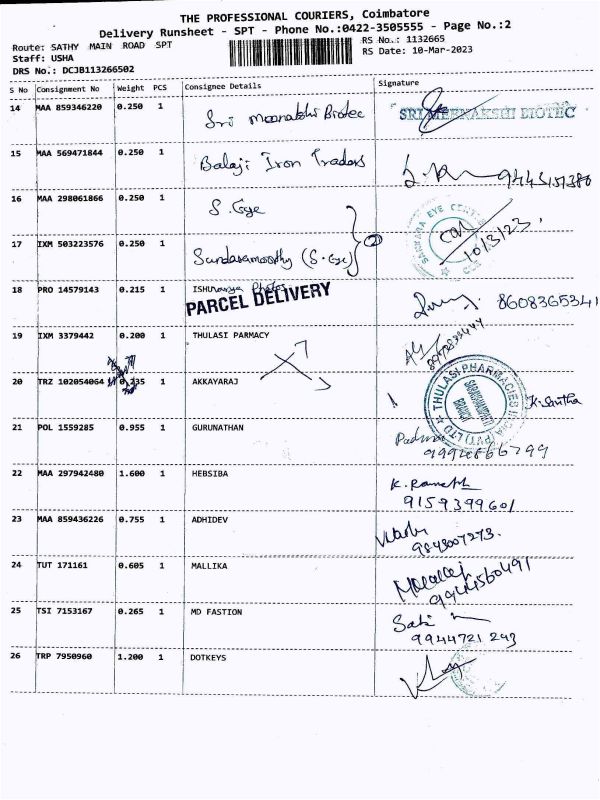 THE PROFESSIONAL COURIERS, Coimbatore
Delivery Runsheet - SPT - Phone No.:0422-3505555 - Page No.:2
Route: SATHY MAIN ROAD SPT RS No.: 1132665
Staff: USHA RS Date: 10-Mar-2023
DRS No.: DCJB113266502
S No Consignment No Weight PCS Consignee Details Signature
14 MAA 859346220 0.250 1 Sri Meenakshi Biotec SRI MEENAKSHI BIOTEC
15 MAA 569471844 0.250 1 Balaji Iron Traders 9443157380
16 MAA 298061866 0.250 1 S. Eye
EYE CENTRE
10/3/23.
17 IXM 503223576 0.250 1 Sundaramoorthy (S. Eye) 2
18 PRO 14579143 0.215 1 ISHwarya Photos 8608365341
PARCEL DELIVERY
19 IXM 3379442 0.200 1 THULASI PARMACY
THULASI PHARMACIES INDIA (PVT) LTD
BRANCH
20 TRZ 102054064 0.235 1 AKKAYARAJ K. Santha
21 POL 1559285 0.955 1 GURUNATHAN Padma
9994666799
22 MAA 297942480 1.600 1 HEBSIBA K. Ramesh
9159399601
23 MAA 859436226 0.755 1 ADHIDEV
9843007273.
24 TUT 171161 0.605 1 MALLIKA
9944560491
25 TSI 7153167 0.265 1 MD FASTION
9944721243
26 TRP 7950960 1.200 1 DOTKEYS